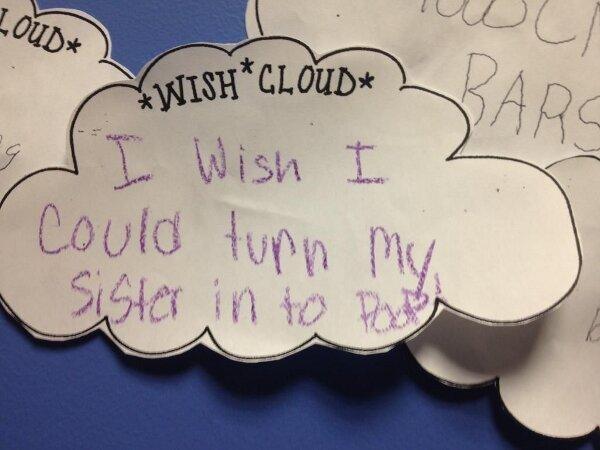 LOUD*
*WISH*CLOUD*
BARS
I Wish I
Could turn my
Sister in to